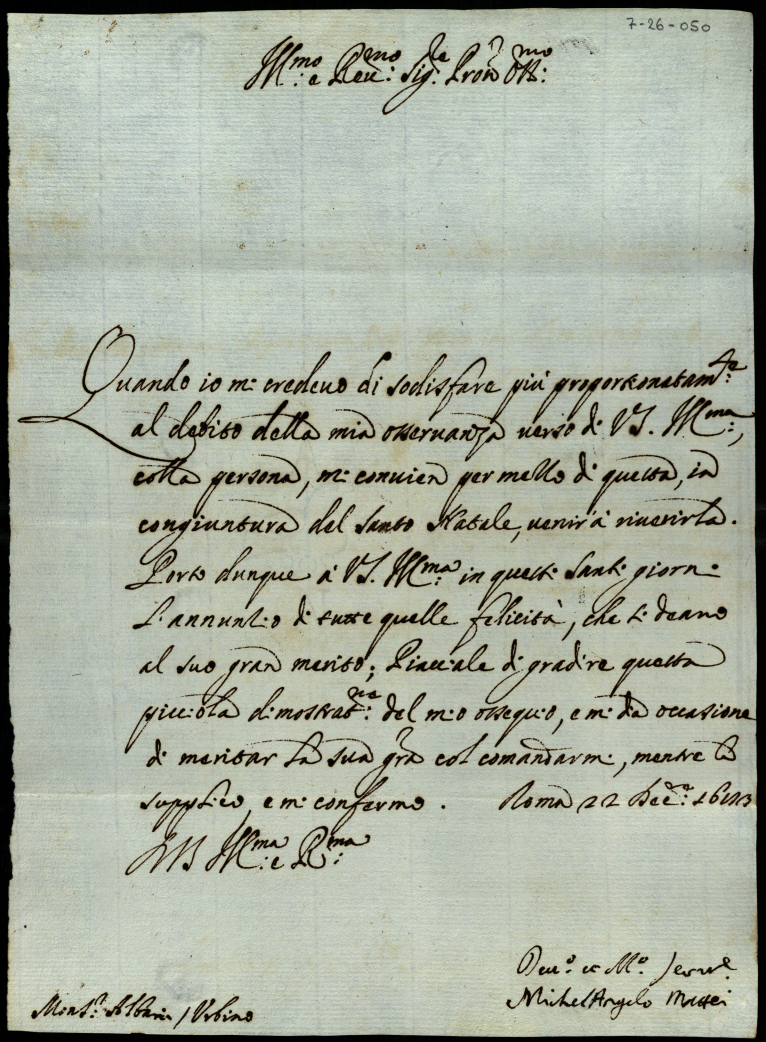 7-26-050
Ill.mo e Reu.mo Sig.re Pron Oss.mo
Quando io mi credeuo di sodisfare più proportionatam.te
al debito della mia osseruanza uerso di VS. Ill.ma,
colla persona, mi conuien per mezzo di questa, in
congiuntura del Santo Natale, uenir à riuerirla.
Porto dunque à VS. Ill.ma in questi Santi giorni
l'annuntio di tutte quelle felicità, che si deano
al suo gran merito; Piacciale di gradire questa
picciola dimostrat.ne del mio ossequio, e mi dia occasione
di meritar la sua gra col comandarmi, mentre la
supplico, e mi confermo. Roma 22 Dec.re
Ill.ma e R.ma
Deu.o et Ser.re
MichelAngelo Mattei
Mons.r Albani / Urbino